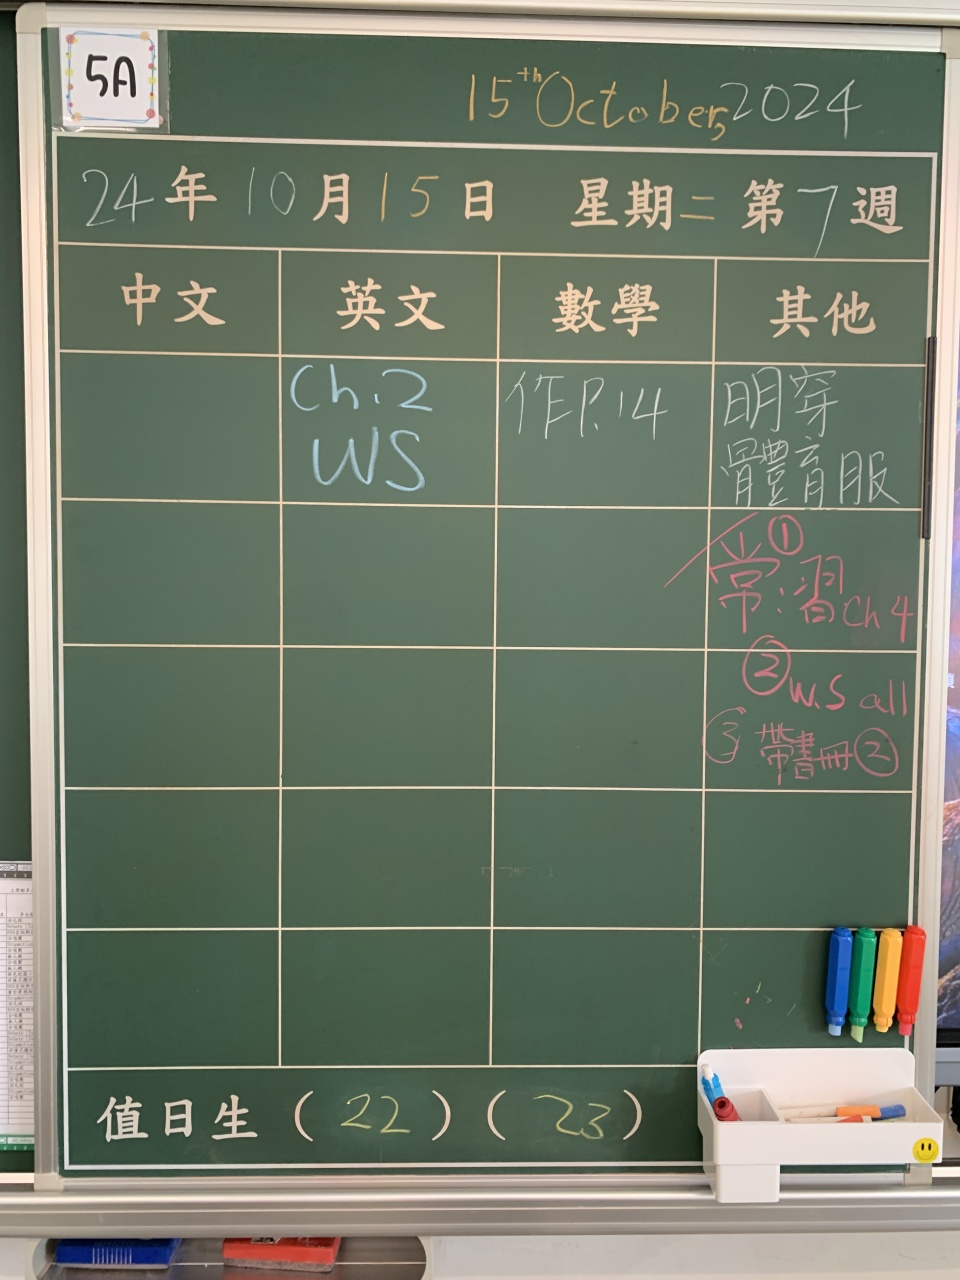 5A
15th October, 2024
24年10月15日 星期二 第7週
中文 英文 數學 其他
Ch.2
WS
作P.14
明穿
體育服
①
常習 Ch 4
② W.S all
③ 帶書冊②
值日生 (22) (23)